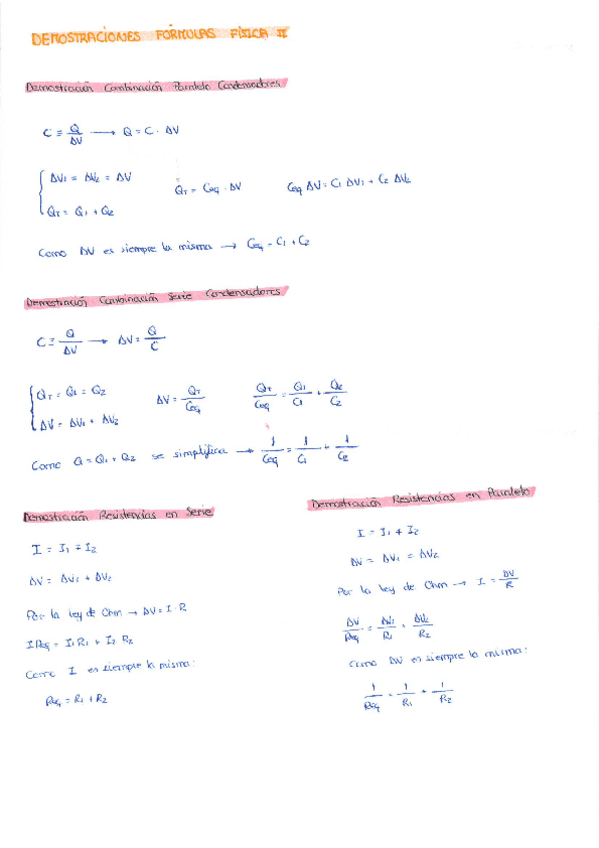 DEMOSTRACIONES FÓRMULAS FÍSICA II
Demostración Combinación Paralelo Condensadores
C ≡ Q/ΔV → Q = C · ΔV
ΔV1 = ΔV2 = ΔV
QT = Q1 + Q2
QT = Ceq · ΔV
Ceq ΔV = C1 ΔV1 + C2 ΔV2
Como ΔV es siempre la misma → Ceq = C1 + C2
Demostración Combinación Serie Condensadores
C ≡ Q/ΔV → ΔV = Q/C
QT = Q1 = Q2
ΔV = ΔV1 + ΔV2
ΔV = QT/Ceq
QT/Ceq = Q1/C1 + Q2/C2
Como Q = Q1 + Q2 se simplifica → 1/Ceq = 1/C1 + 1/C2
Demostración Resistencias en Serie
I = I1 = I2
ΔV = ΔV1 + ΔV2
Por la ley de Ohm → ΔV = I · R
I Req = I1 R1 + I2 R2
Como I es siempre la misma:
Req = R1 + R2
Demostración Resistencias en Paralelo
I = I1 + I2
ΔV = ΔV1 = ΔV2
Por la ley de Ohm → I = ΔV/R
ΔV/Req = ΔV1/R1 + ΔV2/R2
Como ΔV es siempre la misma:
1/Req = 1/R1 + 1/R2